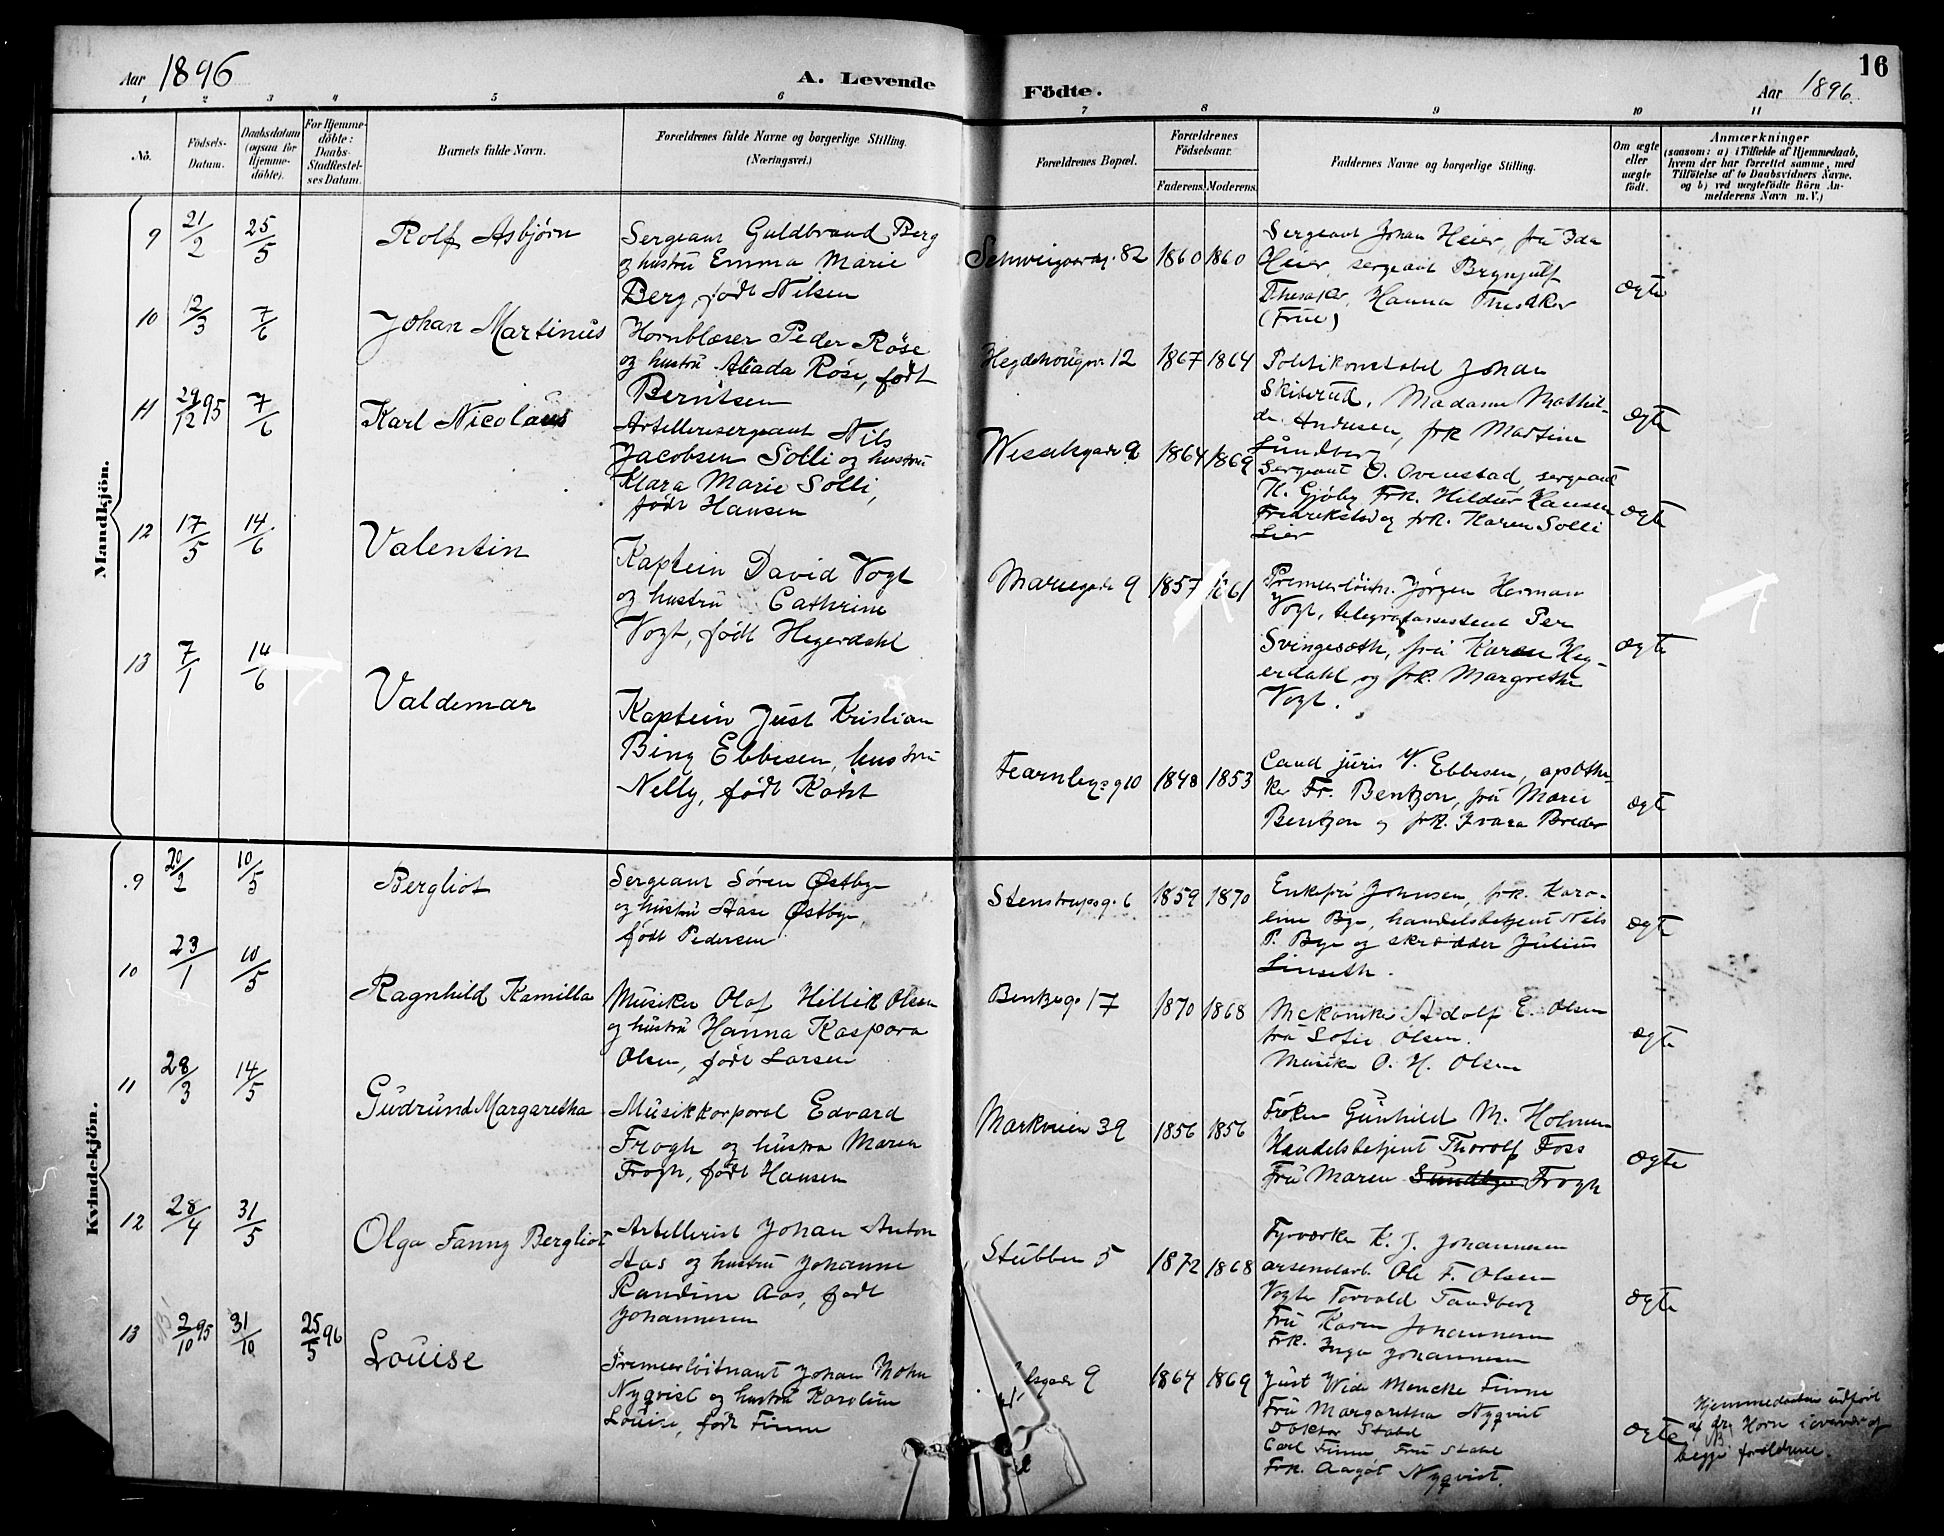 Aar 1896
A. Levende
Födte.
16
Aar 1896.
1 2 3 4 5 6 7 8 9 10 11
No.
Födsels-
Datum.
Daabsdatum
(ogsaa for
Hjemme-
döbte).
For Hjemme-
döbte:
Daabs-
Stadfæstel-
ses Datum.
Barnets fulde Navn.
Forældrenes fulde Navne og borgerlige Stilling.
(Næringsvei.)
Forældrenes Bopæl.
Forældrenes
Födselsaar.
Faderens.
Moderens.
Faddernes Navne og borgerlige Stilling.
Om ægte
eller
uægte
födt.
Anmærkninger
(saasom: a) i Tilfælde af Hjemmedaab,
hvem der har forrettet samme, med
Tilföielse af to Daabsvidners Navne.
og b) ved uægtefödte Börn An-
melderens Navn m.V.)
Mandkjön.
9 21/2 25/5 Rolf Asbjørn
Sergeant Guldbrand Berg
og hustru Emma Marie
Berg, født Nilsen
Schweigaardsg. 82 1860 1860
Sergeant Johan Heier, fru Ida
Heier, sergeant Brynjulf
Thesaker, Hanna Thesaker
(Frue)
ægte
10 12/3 7/6 Johan Martinus
Hornblæser Peder Røse
og hustru Røse, født
Berntsen
Hegdehougsv. 12 1867 1864
Politikonstabel Johan
Skiberud, Madame Mathil-
de Andersen, frk Martine
Lundberg
ægte
11 29/12 95 7/6 Karl Nicolaus
Artillerisergeant Nils
Jacobsen Solli og hustru
Klara Marie Solli,
født Hansen
Wesselsgade 9 1864 1869
Sergeant O. Ovenstad, sergeant
H. Gjøby, Frk. Hildur Hansen
Fredrikstad og frk. Karen Solli
Lier
ægte
12 17/5 14/6 Valentin
Kaptein David Vogt
og hustru Cathrine
Vogt, født Hegerdahl
Mariegade 9 1857 1861
Premierløitn. Jørgen Herman
Vogt, telegrafassistent Per
Svingesæth, fru Karen Heg-
erdahl og frk. Margrethe
Vogt.
ægte
13 7/1 14/6 Valdemar
Kaptein Just Kristian
Bing Ebbesen, hustru
Nelly, født Koht
Fearnleysg 10 1848 1853
Cand juris V. Ebbesen, apothe-
ker Fr. Bentzon, fru Marie
Bentzon og frk. Breder
ægte
Kvindekjön.
9 20/2 10/5 Bergliot
Sergeant Søren Østbye
og hustru Aase Østbye,
født Pedersen
Stenstrupsg. 6 1859 1870
Enkefru Johnsen, frk. Karo-
line Bye, handelsbetjent Nils
P. Bye og skrædder Julius
Linseth.
ægte
10 23/1 10/5 Ragnhild Kamilla
Musiker Olaf Olsen
og hustru Hanna Kaspara
Olsen, født Larsen
Bentzeg. 17 1870 1868
Mekaniker Adolf E. Olsen
fru Sofie Olsen.
Musiker O. H. Olsen
ægte
11 28/3 14/5 Gudrund Margaretha
Musikkorporal Edvard
Frogh og hustru Maren
Frogh, født Hansen
Markveien 39 1856 1856
Frøken Gunhild M. Holmen
Handelsbetjent Thorolf Foss
Fru Maren Sundbye Frogh
ægte
12 28/4 31/5 Olga Fanny Bergliot
Artillerist Johan Anton
Aas og hustru Johanne
Randine Aas, født
Johannesen
Stubben 5 1872 1868
Fyrværker K. J. Johannesen
arsenalarb. Ole F. Olsen
Vogter Torvald Tandberg
Fru Karen Johannesen
Frk. Inga Johannesen
ægte
13 2/10 95 31/10 25/5 96 Louise
Premierløitnant Johan Mohn
Nyqvist og hustru Karoline
Louise, født Finne
lsgade 9 1864 1869
Just Wide Mencke Finne
Fru Margaretha Nyqvist
Doktor Stabel
Carl Finne Fru Stabel
Frk. Aagot Nyqvist.
ægte
Hjemmedaaben udført
af dr. Horn i overvær af
begge forældrene.